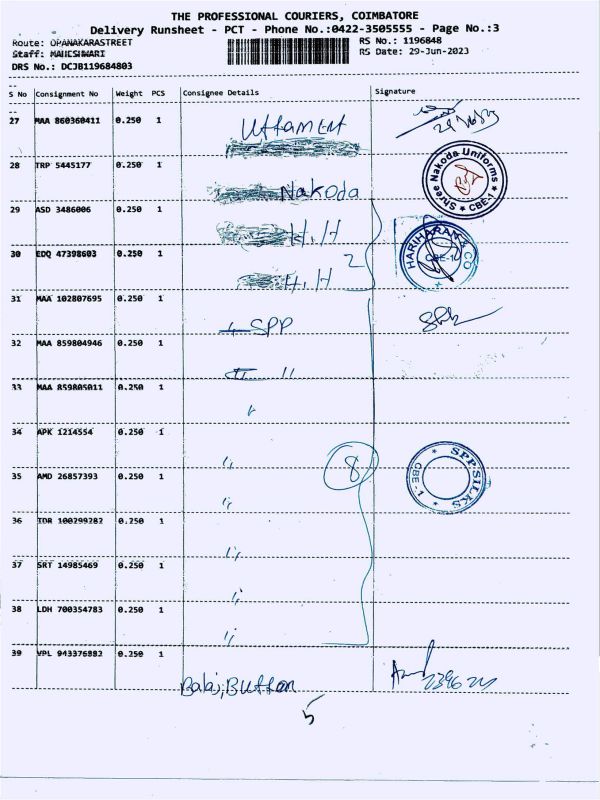 THE PROFESSIONAL COURIERS, COIMBATORE
Delivery Runsheet - PCT - Phone No.:0422-3505555 - Page No.:3
Route: OPANAKARASTREET
RS No.: 1196848
Staff: MAHESHWARI
RS Date: 29-Jun-2023
DRS No.: DCJB119684803
S No Consignment No Weight PCS Consignee Details Signature
27 MAA 860360411 0.250 1
28 TRP 5445177 0.250 1
Nakoda
Shree Nakoda Uniforms * CBE-1 *
29 ASD 3486006 0.250 1
H.H
30 EDQ 47398603 0.250 1
2
HARIHARAM & CO
CBE-1
H.H
31 MAA 102807695 0.250 1
SPP
32 MAA 859804946 0.250 1
"
33 MAA 859805011 0.250 1
34 APK 1214554 0.250 1
"
8
SPP SILKS * CBE-1 *
35 AMD 26857393 0.250 1
"
36 IDR 100299282 0.250 1
"
37 SRT 14985469 0.250 1
"
38 LDH 700354783 0.250 1
"
39 VPL 943376882 0.250 1
Balaji Button
5